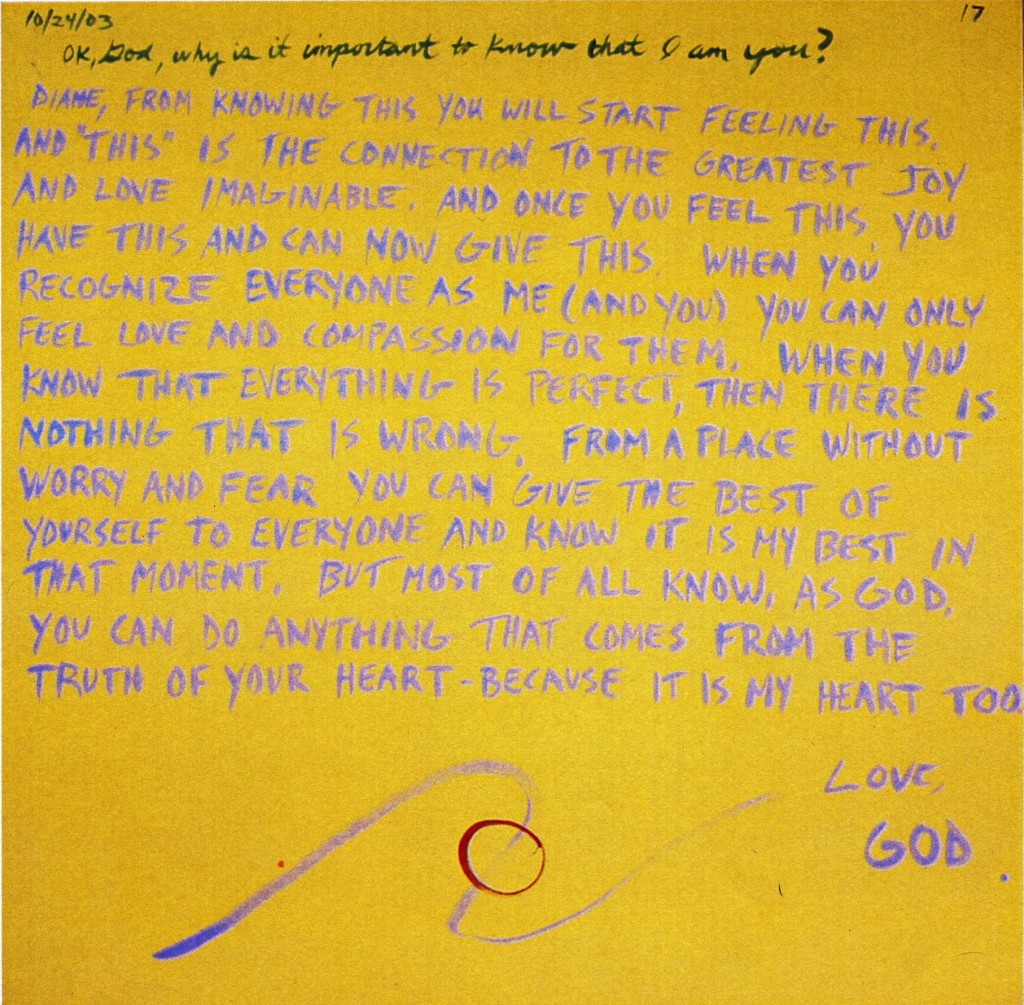 10/24/03 17
OK, God, why is it important to know that I am you?
DIANE, FROM KNOWING THIS YOU WILL START FEELING THIS.
AND "THIS" IS THE CONNECTION TO THE GREATEST JOY
AND LOVE IMAGINABLE. AND ONCE YOU FEEL THIS, YOU
HAVE THIS AND CAN NOW GIVE THIS. WHEN YOU
RECOGNIZE EVERYONE AS ME (AND YOU) YOU CAN ONLY
FEEL LOVE AND COMPASSION FOR THEM. WHEN YOU
KNOW THAT EVERYTHING IS PERFECT, THEN THERE IS
NOTHING THAT IS WRONG. FROM A PLACE WITHOUT
WORRY AND FEAR YOU CAN GIVE THE BEST OF
YOURSELF TO EVERYONE AND KNOW IT IS MY BEST IN
THAT MOMENT. BUT MOST OF ALL KNOW, AS GOD,
YOU CAN DO ANYTHING THAT COMES FROM THE
TRUTH OF YOUR HEART - BECAUSE IT IS MY HEART TOO.
LOVE,
GOD.